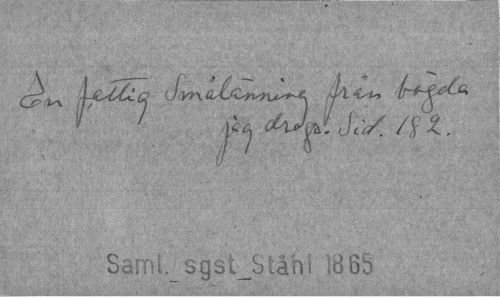 En fattig Smålänning från bögda
jag drogo. Sid. 182.
Saml. sgst Ståhl 1865